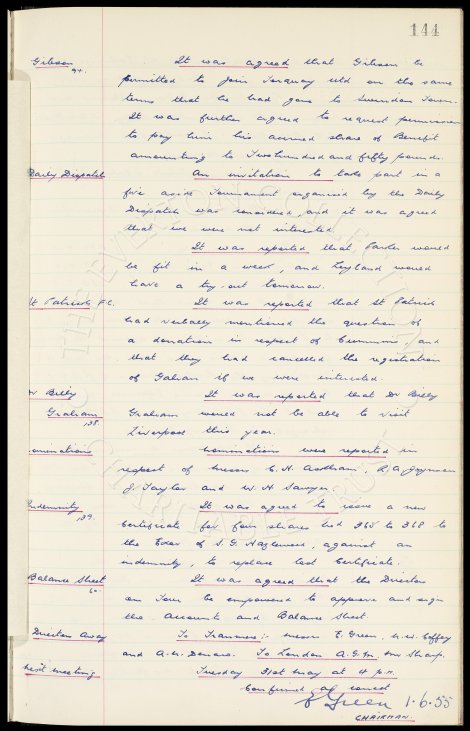 144
Gibson 94.
It was agreed that Gibson be
permitted to join Torquay Utd on the same
terms that he had gone to Swindon Town.
It was further agreed to request permission
to pay him his accrued share of Benefit
amounting to Two hundred and fifty pounds.
Daily Dispatch
An invitation to take part in a
five aside Tournament organised by the Daily
Dispatch was considered, and it was agreed
that we were not interested.
It was reported that Parker would
be fit in a week, and Leyland would
have a try-out tomorrow.
St Patricks F.C.
It was reported that St Patrick
had verbally mentioned the question of
a donation in respect of Cummins, and
that they had cancelled the registration
of if we were interested.
Dr Billy
It was reported that Dr Billy
Graham 138.
Graham would not be able to visit
Liverpool this year.
nominations
nominations were reported in
respect of messrs C. H. R. A.
J Taylor and W. H. Sawyer
Indemnity 139
It was agreed to issue a new
Certificate for four shares Nos 365 to 368 to
the Exor of S. G. Hazlewood, against an
indemnity, to replace lost Certificate.
Balance Sheet
It was agreed that the Directors
on Tour be empowered to approve and sign
the Accounts and Balance Sheet.
Directors Away
To Tranmere:- messrs E. Green, N. W. Coffey
and A. W. Denaro. To London A.G.M. Mr Sharp.
next meeting
Tuesday 31st May at 4 p.m.
Confirmed as correct
E Green 1.6.55
CHAIRMAN.
THE EVERTON COLLECTION
CHARITABLE TRUST